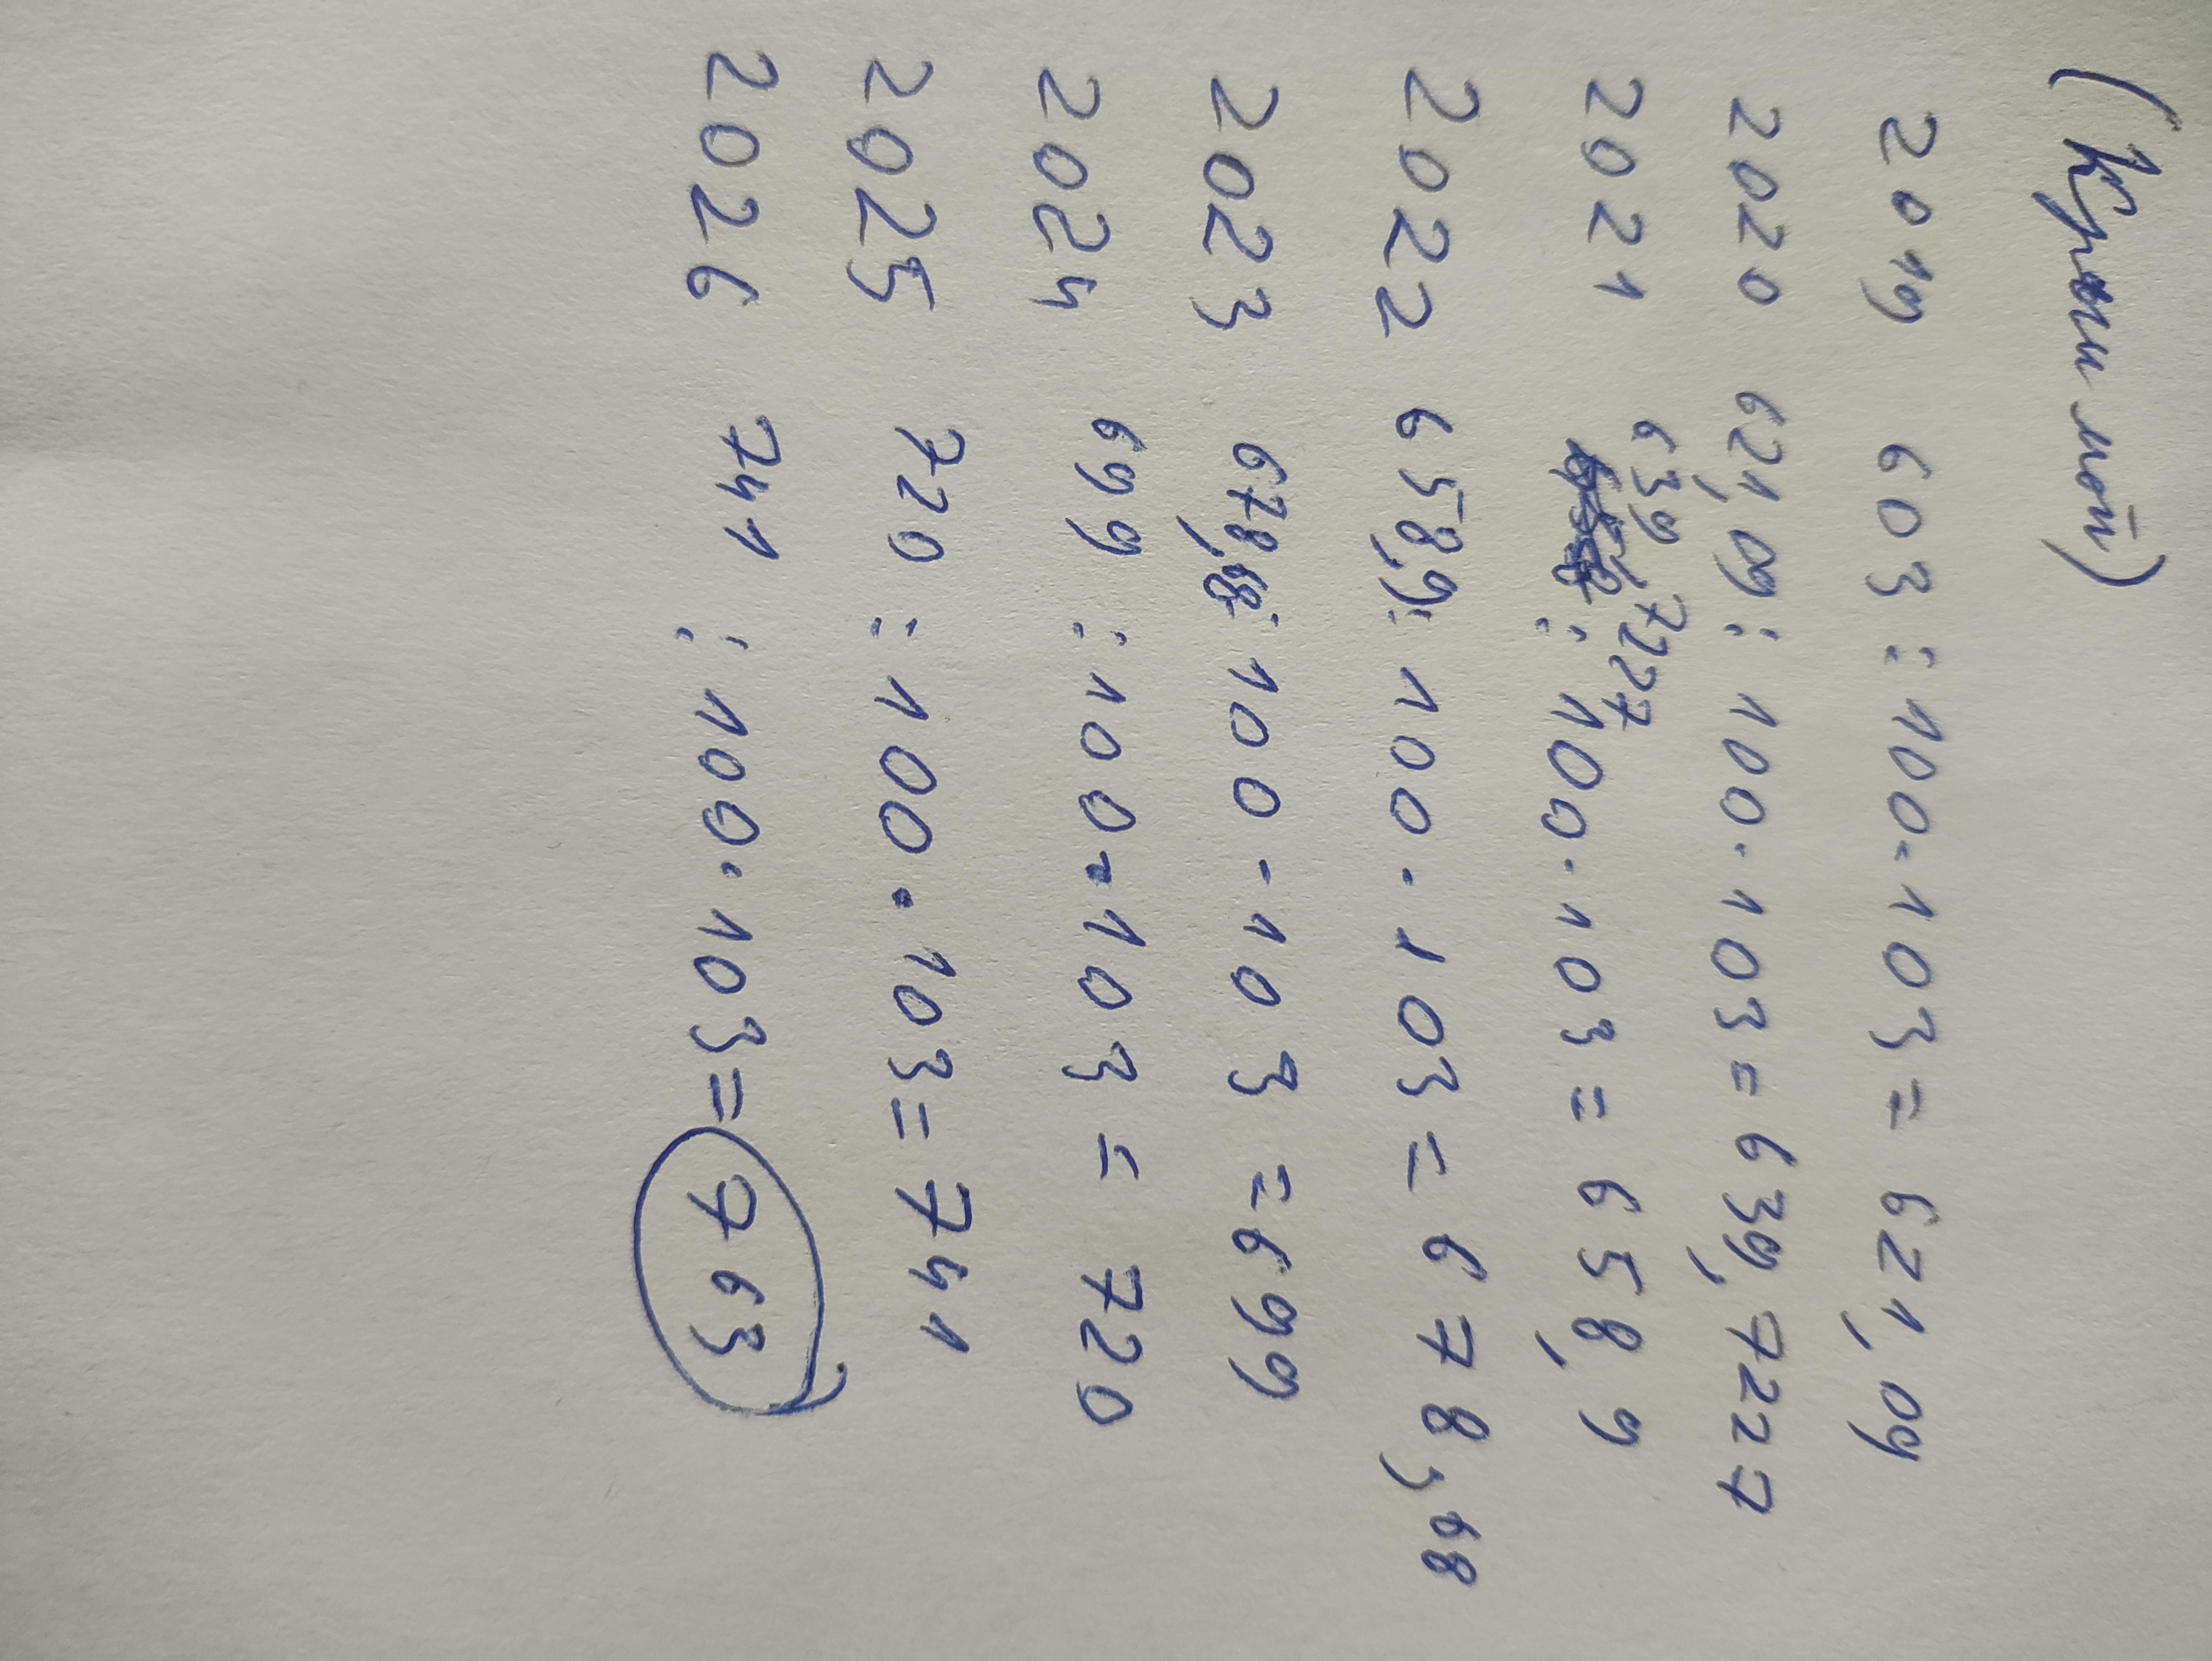 (Крошмой)
2019 603 : 100 . 103 = 621,09
2020 621,09 : 100 . 103 = 639,7227
2021 639 7227 : 100 . 103 = 658,9
2022 658,9 : 100 . 103 = 678,68
2023 678,68 : 100 . 103 = 699
2024 699 : 100 . 103 = 720
2025 720 : 100 . 103 = 741
2026 741 : 100 . 103 = 763